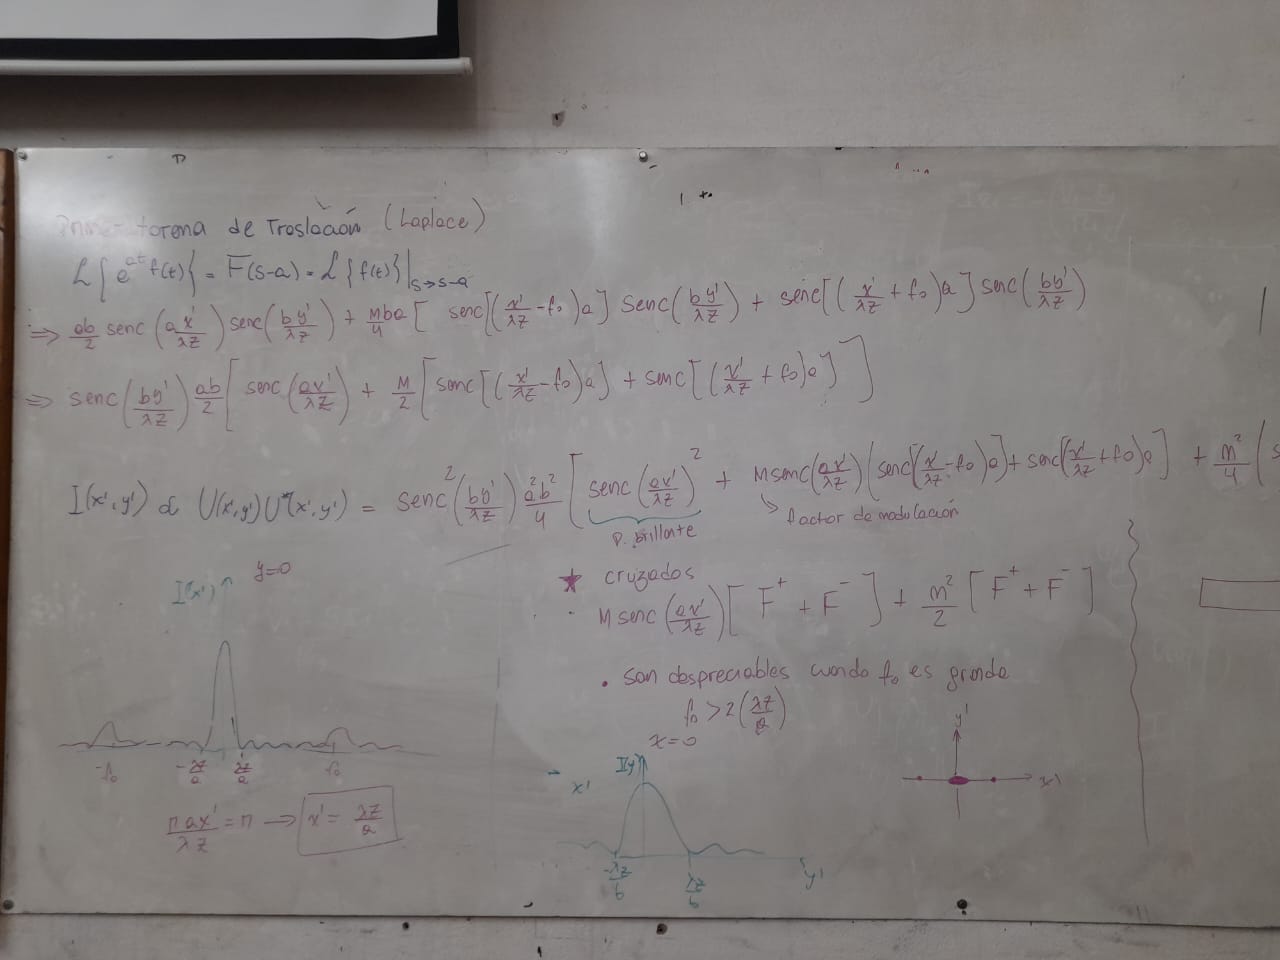 Primer torema de Traslación (Laplace)
ℒ{e^{at} f(t)} = F(s-a) = ℒ{f(t)}|_{s→s-a}
⇒ ab/2 senc(a x'/λz) senc(b y'/λz) + Mba/4 [ senc[(x'/λz - f₀)a] senc(b y'/λz) + senc[(x'/λz + f₀)a] senc(by'/λz)
⇒ senc(by'/λz) ab/2 [ senc(ax'/λz) + M/2 [ senc[(x'/λz - f₀)a] + senc[(x'/λz + f₀)a] ] ]
I(x',y') α U(x',y')U*(x',y') = senc²(by'/λz) a²b²/4 [ senc(ax'/λz)² + M senc(ax'/λz)(senc[(x'/λz - f₀)a] + senc[(x'/λz + f₀)a] + m²/4 (s
P. brillante
factor de modulación
★ cruzados
· M senc(ax'/λz)[F⁺ + F⁻] + m²/2 [F⁺ + F⁻]
• son despreciables cuando f₀ es grande
f₀ > 2(λz/a)
I(x') y=0
-f₀ -λz/a λz/a f₀
π ax'/λz = π → x' = λz/a
x=0
x' I(y')
-λz/b λz/b y'
y'
x'